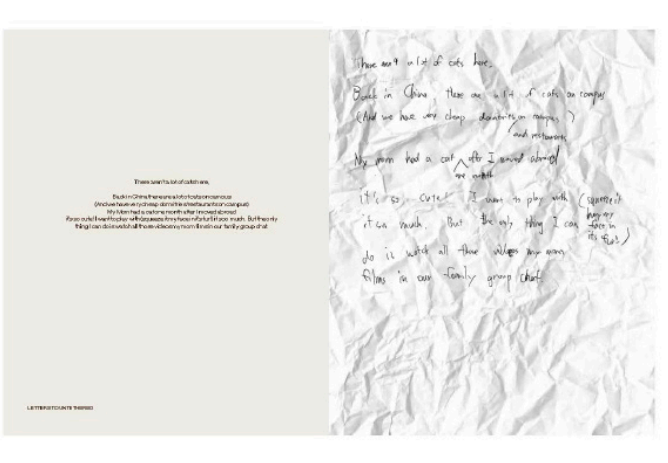 There aren't a lot of cats here,
Back in China there are a lot of cats on campus
(And we have very cheap on campus)
My Mom had a cat one month after I moved abroad
it's so cute! I want to play with it so much. But the only
thing I can do is watch all those videos my mom films in our family group chat
LETTERS TO
There aren't a lot of cats here.
Back in China, there are a lot of cats on campus
(And we have very cheap on campus)
and restaurants
My mom had a cat after I moved abroad
one month
it's so cute! I want to play with (squeeze it
bury my
it so much. But the only thing I can
face in
its fur)
do is watch all those videos my mom
films in our family group chat.